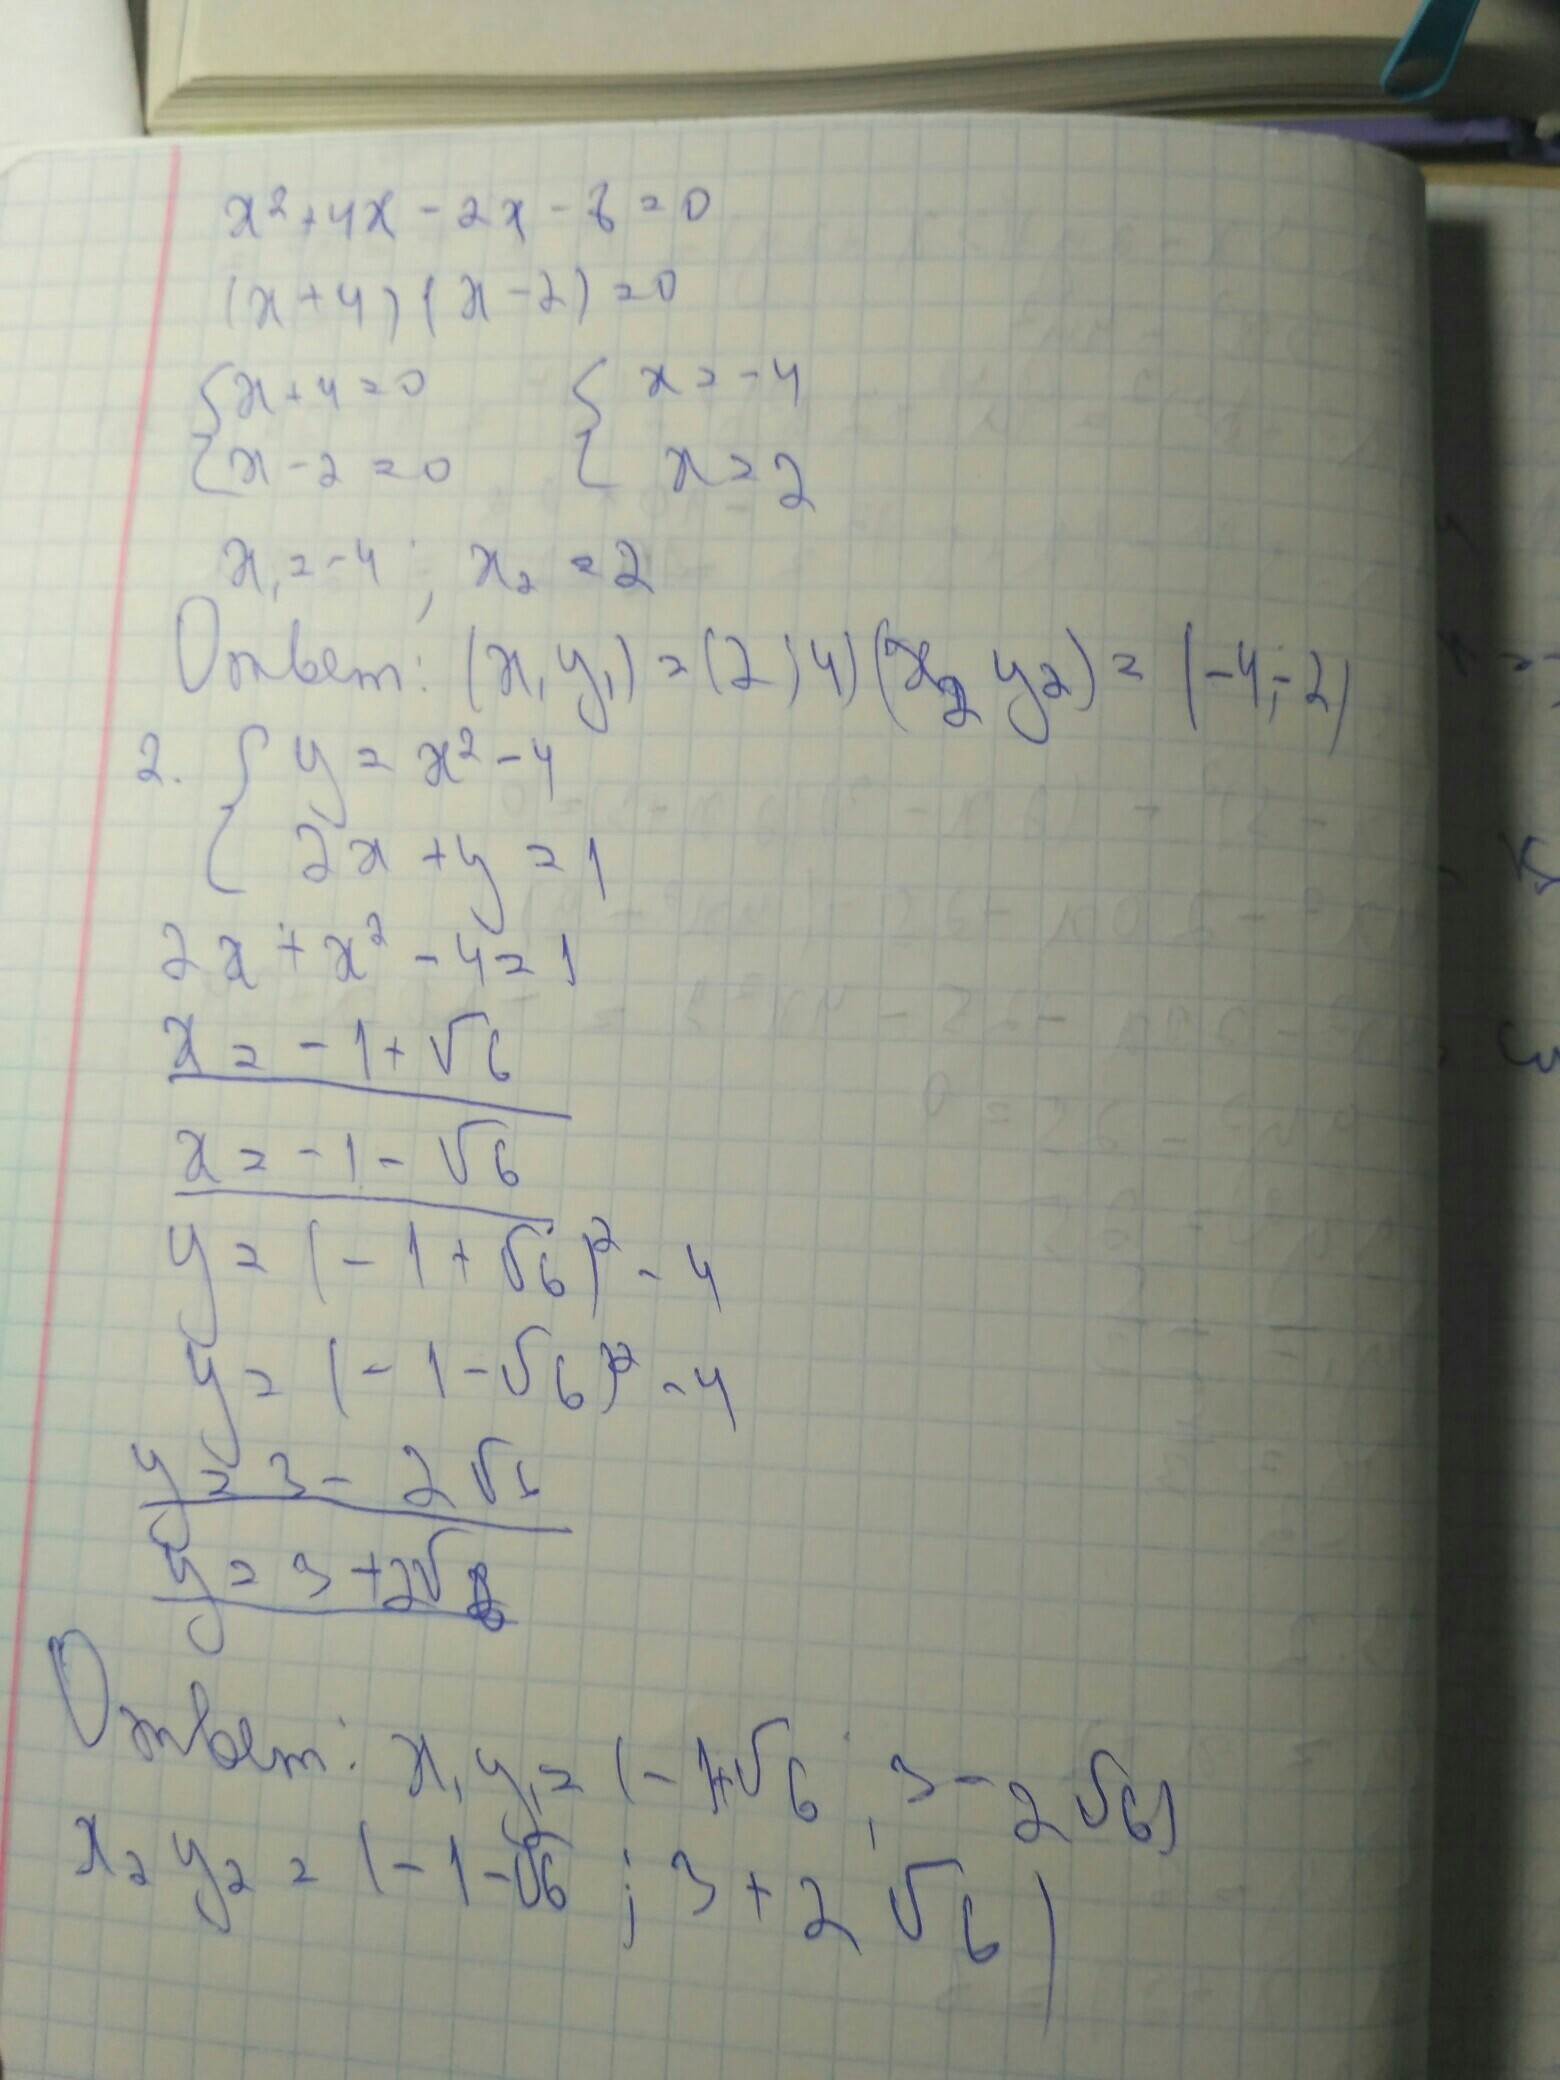 x²+4x-2x-8=0
(x+4)(x-2)=0
{x+4=0 {x=-4
{x-2=0 {x=2
x₁=-4; x₂=2
Ответ: (x₁y₁)=(2;4)(x₂y₂)=(-4;-2)
2. {y=x²-4
{2x+y=1
2x+x²-4=1
x=-1+√6
x=-1-√6
y=(-1+√6)²-4
y=(-1-√6)²-4
y=3-2√6
y=3+2√6
Ответ: x₁y₁=(-1+√6; 3-2√6)
x₂y₂=(-1-√6; 3+2√6)